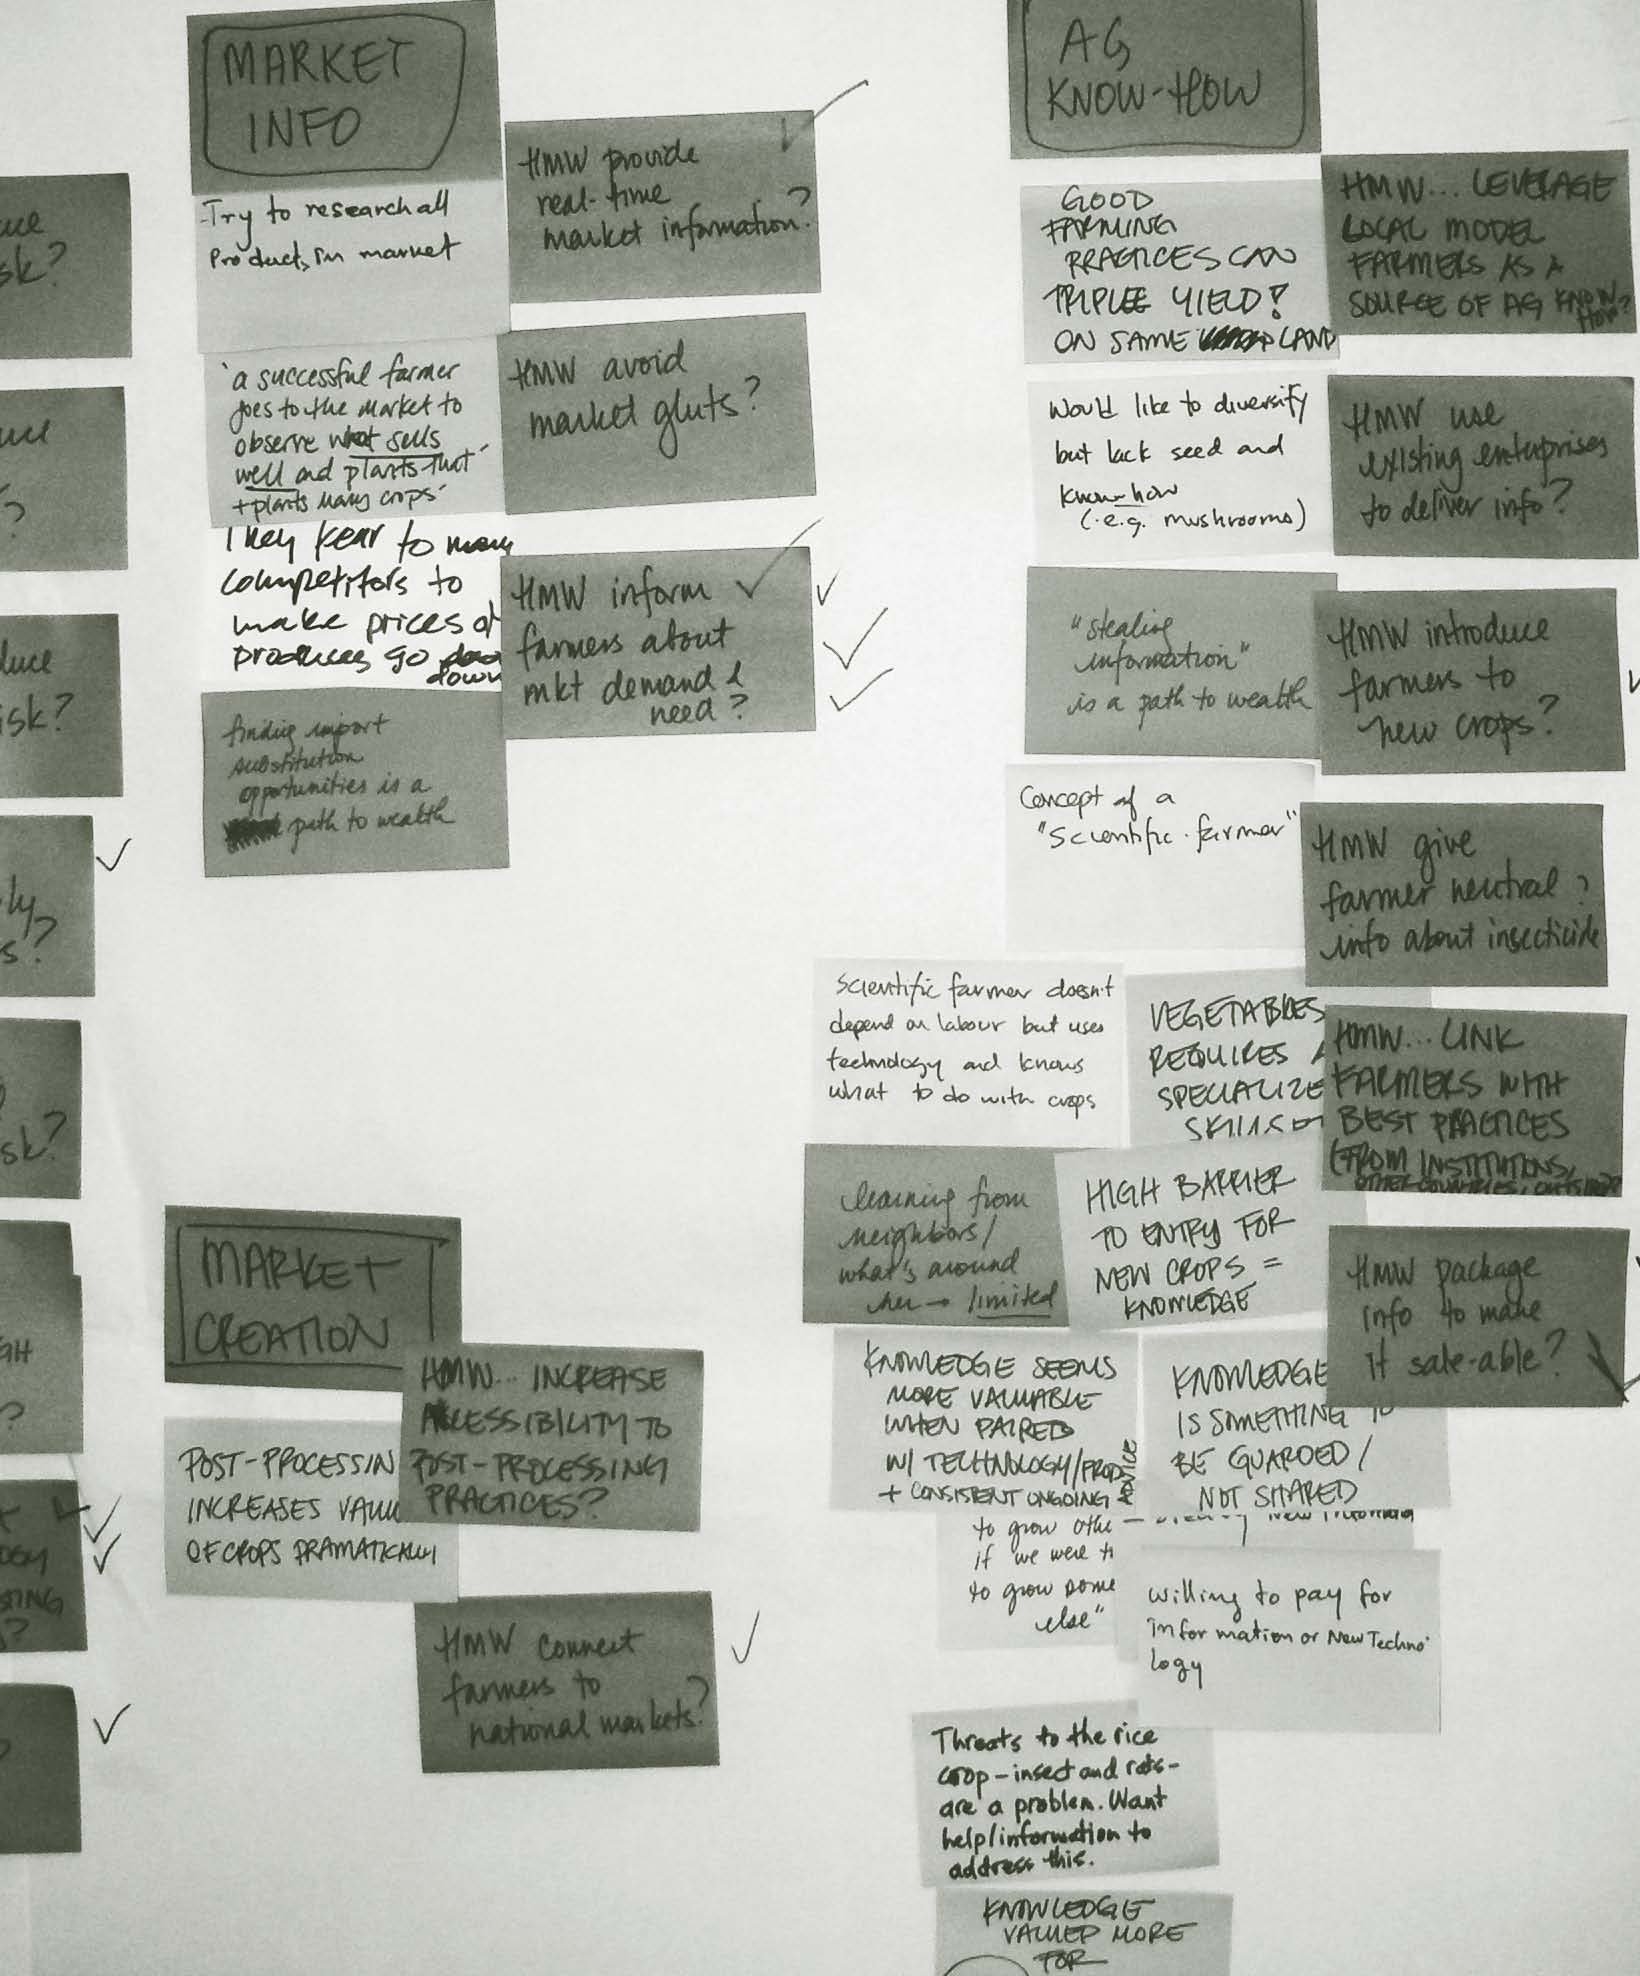 MARKET
INFO
-Try to research all
Products in market
'a successful farmer
goes to the market to
observe what sells
well and plants that'
+ plants many crops'
They fear to many
competitors to
make prices of
produces go
down
finding import
substitution
opportunities is a
path to wealth
HMW provide
real-time
market information?
HMW avoid
market gluts?
HMW inform
farmers about
mkt demand &
need?
MARKET
CREATION
POST-PROCESSIN
INCREASES VALU
OF CROPS DRAMATICALLY
HMW... INCREASE
ACCESSIBILITY TO
POST-PROCESSING
PRACTICES?
HMW connect
farmers to
national markets?
AG
KNOW-HOW
GOOD
FARMING
PRACTICES CAN
TRIPLE YIELD!
ON SAME LAND
Would like to diversify
but lack seed and
know-how
(i.e.g. mushrooms)
"stealing
information"
is a path to wealth
Concept of a
"Scientific farmer"
Scientific farmer doesn't
depend on labour but uses
technology and knows
what to do with crops
VEGETABLES
REQUIRES A
SPECIALIZE
SKILLSET
learning from
neighbors/
what's around
her → limited
HIGH BARRIER
TO ENTRY FOR
NEW CROPS =
KNOWLEDGE
KNOWLEDGE SEEMS
MORE VALUABLE
WHEN PAIRED
W/ TECHNOLOGY/PROD
+ CONSISTENT ONGOING ADVICE
KNOWLEDGE
IS SOMETHING TO
BE GUARDED/
NOT SHARED
to grow othe
if we were
to grow some
else"
willing to pay for
information or New Techno
logy
Threats to the rice
crop - insect and rats -
are a problem. Want
help/information to
address this.
KNOWLEDGE
VALUED MORE
FOR
HMW... LEVERAGE
LOCAL MODEL
FARMERS AS A
SOURCE OF AG KNOW
HOW?
HMW use
existing enterprises
to deliver info?
HMW introduce
farmers to
new crops?
HMW give
farmer neutral ?
info about insecticide
HMW... LINK
FARMERS WITH
BEST PRACTICES
(FROM INSTITUTIONS,
OTHER COUNTRIES, OUTSIDE?
HMW package
info to make
it sale-able?
uce
sk?
?
duce
isk?
ly
s?
sk?
GH
?
STING
?